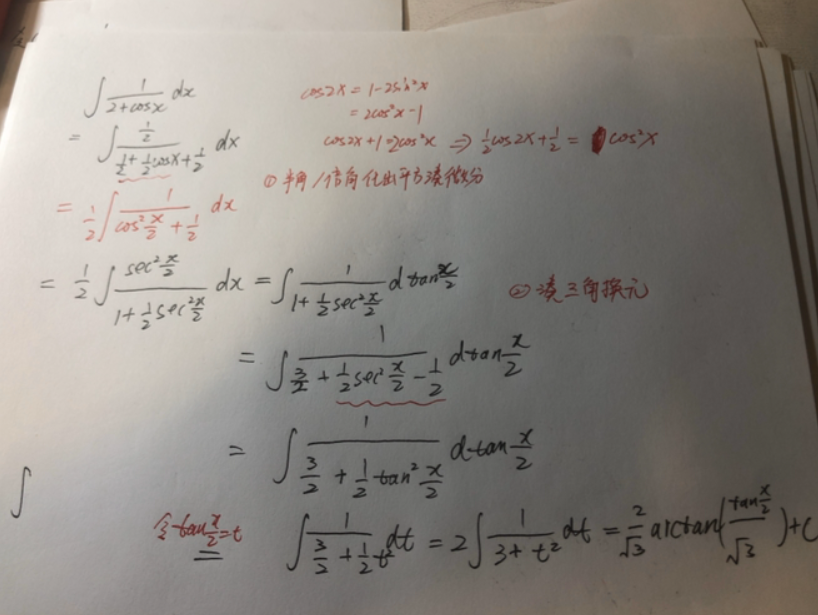 ∫ 1/(2+cosx) dx
cos2x = 1-2sin²x
= 2cos²x-1
= ∫ (1/2)/(1/2+1/2cosx+1/2) dx
cos2x+1=2cos²x ⇒ 1/2cos2x+1/2 = cos²x
① 半角/倍角化出平方凑微分
= 1/2 ∫ 1/(cos²x/2+1/2) dx
= 1/2 ∫ sec²x/2/(1+1/2sec²x/2) dx = ∫ 1/(1+1/2sec²x/2) d tan x/2
② 凑三角换元
= ∫ 1/(3/2+1/2sec²x/2-1/2) d tan x/2
= ∫ 1/(3/2+1/2tan²x/2) d tan x/2
∫
令tan x/2=t
∫ 1/(3/2+1/2t²) dt = 2∫ 1/(3+t²) dt = 2/√3 arctan(tan x/2/√3)+C